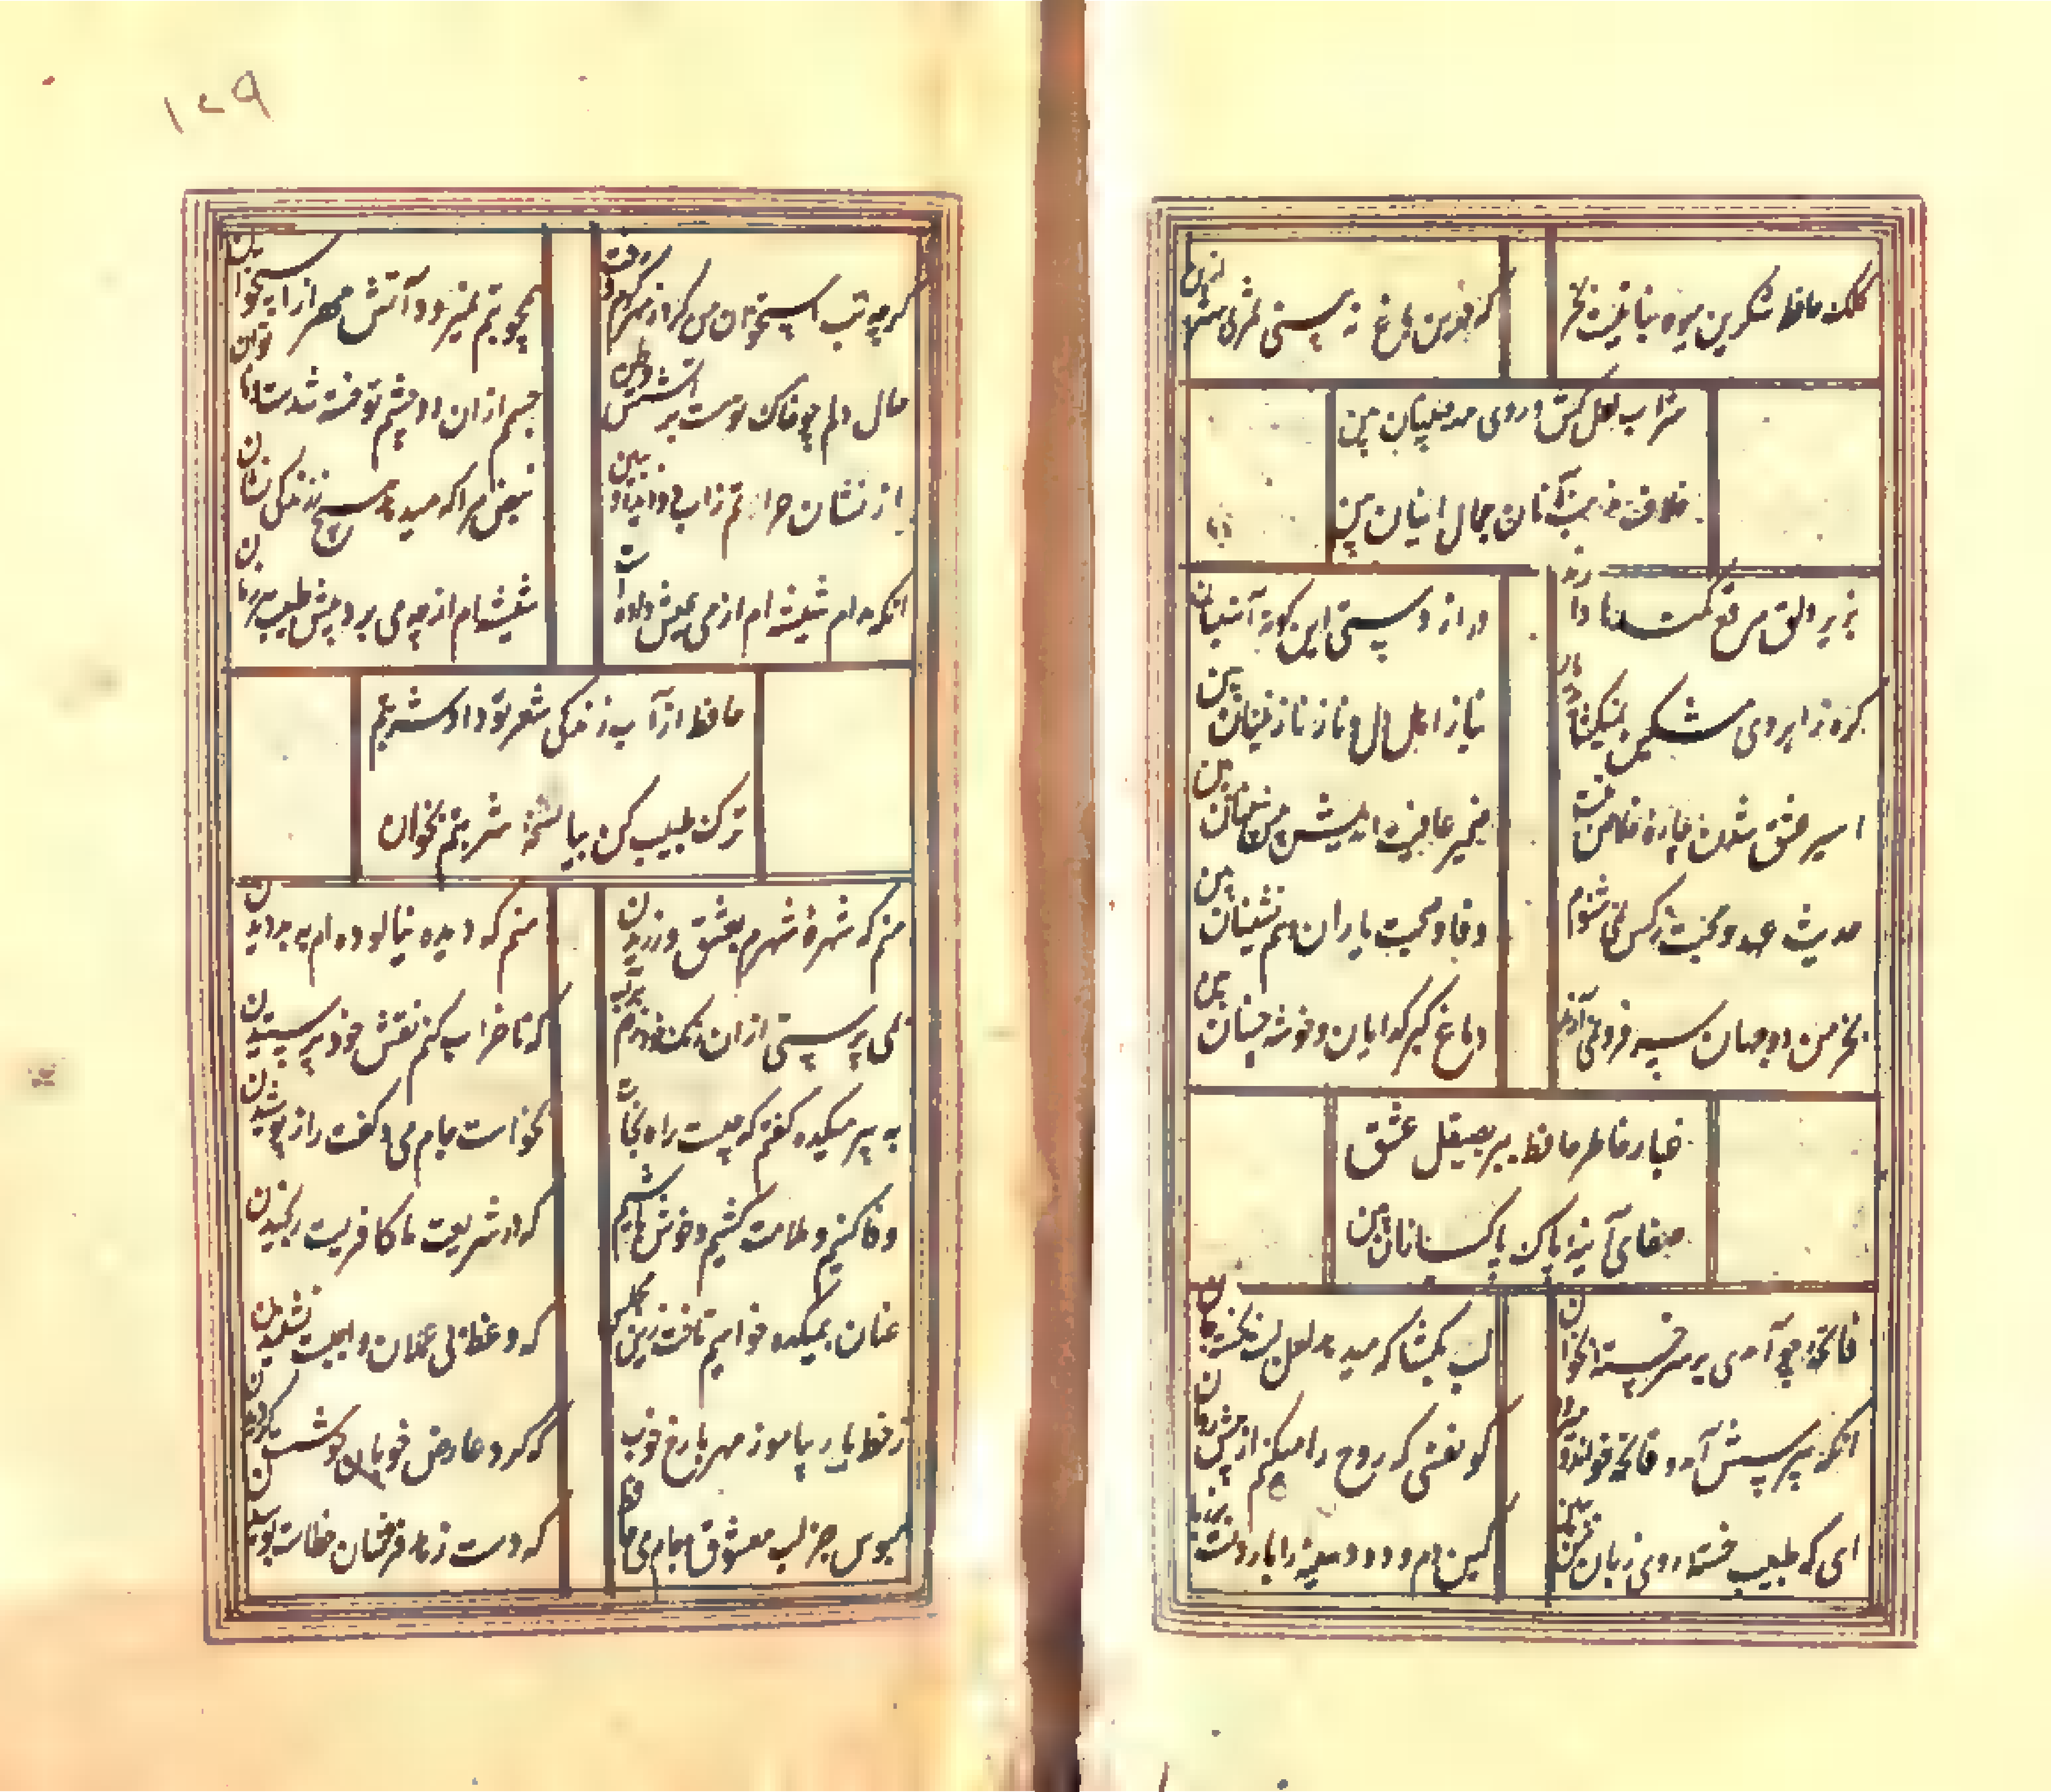 کلک حافظ شکرین میوه نباتیست بچین
که درین باغ نه بینی ثمری بهتر ازین
شراب لعل کش و روی مه جبینان بین
خلاف مذهب آنان جمال اینان بین
بزیر دلق مرقع کمندها دارند
دراز دستی این کوته آستینان بین
گره ز ابروی مشکین نمیگشاید یار
نیاز اهل دل و ناز نازنینان بین
اسیر عشق شدن چاره خلاص منست
ضمیر عاقبت اندیش پیش بینان بین
حدیث عهد و محبت ز کس نمی شنوم
وفا و صحبت یاران همنشینان بین
بخرمن دو جهان سر فرو نمی آرند
دماغ کبر گدایان و خوشه چینان بین
غبار خاطر حافظ ببرد صیقل عشق
صفای آینه پاک پاکدینان بین
فاتحه چو آمدی بر سر خسته بخوان
لب بگشا که میدهد لعل لبت بخسته جان
آنکه بپرسش آمد و فاتحه خواند و میرود
کو نفسی که روح را میکنم از پیش روان
ای که طبیب خسته روی زبان من ببین
کین دم و دود سینه را بار دلست بر زبان
۱۷۹
گرچه تب استخوان من کرد ز مهر گرم و رفت
همچو تبم نمیرود آتش مهر از استخوان
حال دلم چو خال تو هست بر آتشش وطن
جسم از آن دو چشم تو خسته شدست و ناتوان
باز نشان حرارتم ز آب دو دیده و ببین
نبض مرا که میدهد هیچ ز زندگی نشان
آنکه مدام شیشه ام از می عیش داده است
شیشه ام از چه می برد پیش طبیب هر زمان
حافظ از آب زندگی شعر تو داد شربتم
ترک طبیب کن بیا نسخه شربتم بخوان
منم که شهره شهرم بعشق ورزیدن
منم که دیده نیالوده ام به بد دیدن
بمی پرستی از آن نقش خود زدم بر آب
که تا خراب کنم نقش خود پرستیدن
به پیر میکده گفتم که چیست راه نجات
بخواست جام می و گفت راز پوشیدن
وفا کنیم و ملامت کشیم و خوش باشیم
که در شریعت ما کافریست رنجیدن
عنان بمیکده خواهیم تافت زین مجلس
که وعظ بی عملان واجبست نشنیدن
ز خط یار بیاموز مهر با رخ خوب
که گرد عارض خوبان خوشست گردیدن
مبوس جز لب معشوق و جام می حافظ
که دست زهد فروشان خطاست بوسیدن